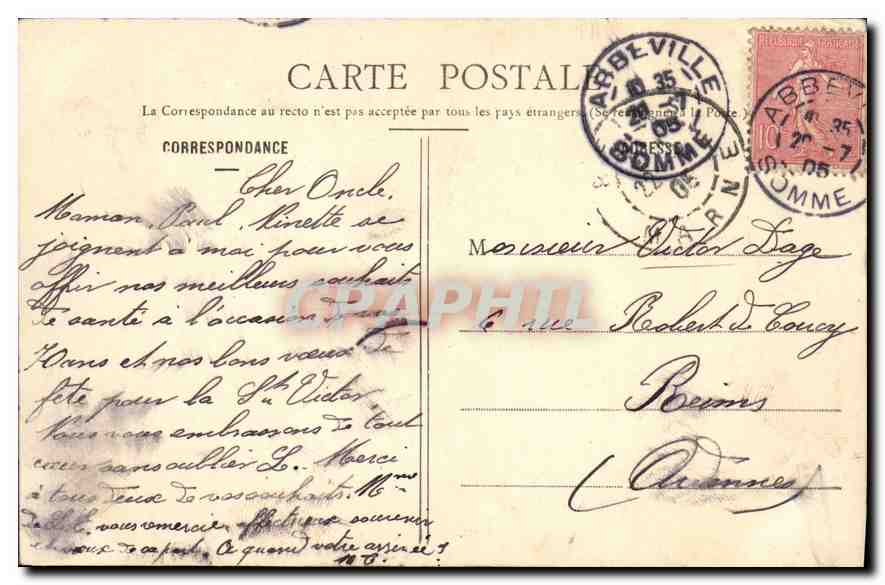 CARTE POSTALE
La Correspondance au recto n'est pas acceptée par tous les pays étrangers. (Se renseigner à la Poste.)
CORRESPONDANCE
ADRESSE
ABBEVILLE
10 35
20 -7
05
SOMME
REPUBLIQUE FRANÇAISE
10
ABBEVI
35
20 -7
05
SOMME
22
05
RNE
Cher Oncle,
Maman, Paul, Ninette se
joignent à moi pour vous
offrir nos meilleurs souhaits
de santé à l'occasion de
70ans et nos bons vœux de
fête pour la St Victor.
Nous vous embrassons de tout
cœur sans oublier L. Merci
à tous deux de vos souhaits. Mme
vous remercie affectueux souvenir
et vœux de sa part. A quand votre arrivée ?
Monsieur Victor Dage
6 rue Robert de Coucy
Reims
(Ardennes)
CPAPHIL